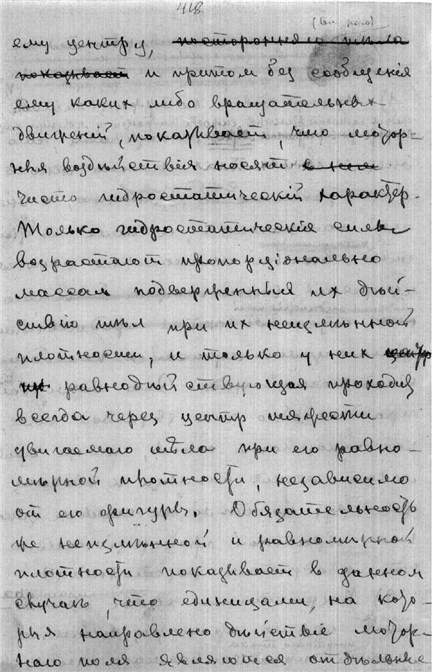 418
ему центру, постороннаго тѣла
показывает и притом без сообщенія
ему каких либо вращательных
движеній, показывает, что мотор-
ныя воздѣйствія носят
чисто гидростатическій характер.
Только гидростатическія силы
возрастают пропорціонально
массам подверженных их дѣй-
ствію тѣл при их неизмѣнной
плотности, и только у них
равнодѣйствующая проходит
всегда через центр тяжести
двигаемаго тѣла при его равно-
мѣрной плотности, независимо
от его фигуры. Обязательность
же неизмѣнной и равномѣрной
плотности показывает в данном
случаѣ, что единицами, на кото-
рыя направлено дѣйствіе мотор-
наго поля являются отдѣльные